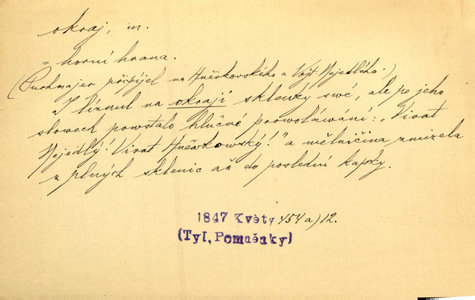 okraj, m.
horní hrana.
(Puchmajer připíjel na Hněvkovského a Vojt. Nejedlého.)
"I trnul na okraji sklenky své, ale po jeho
slovech povstalo hlučné provolávání: "Vivat
Nejedlý! Vivat Hněvkovský!" a mělničina zmizela
z plných sklenic až do poslední kapky.
1847 Květy 454 a) 12.
(Tyl, Pomněnky)